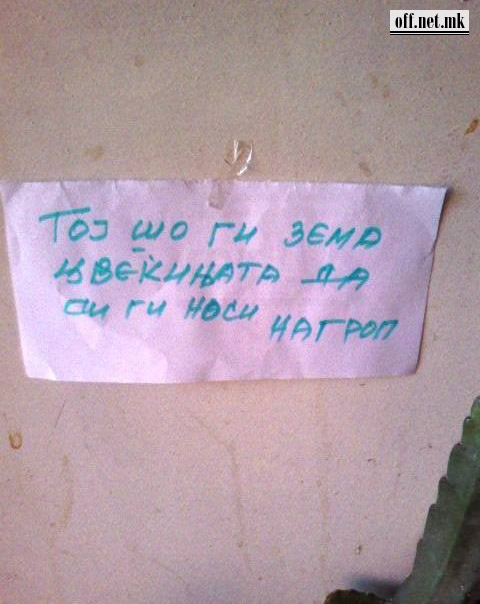 off.net.mk
Тој шо ги зема
цвеќињата да
си ги носи нагроп